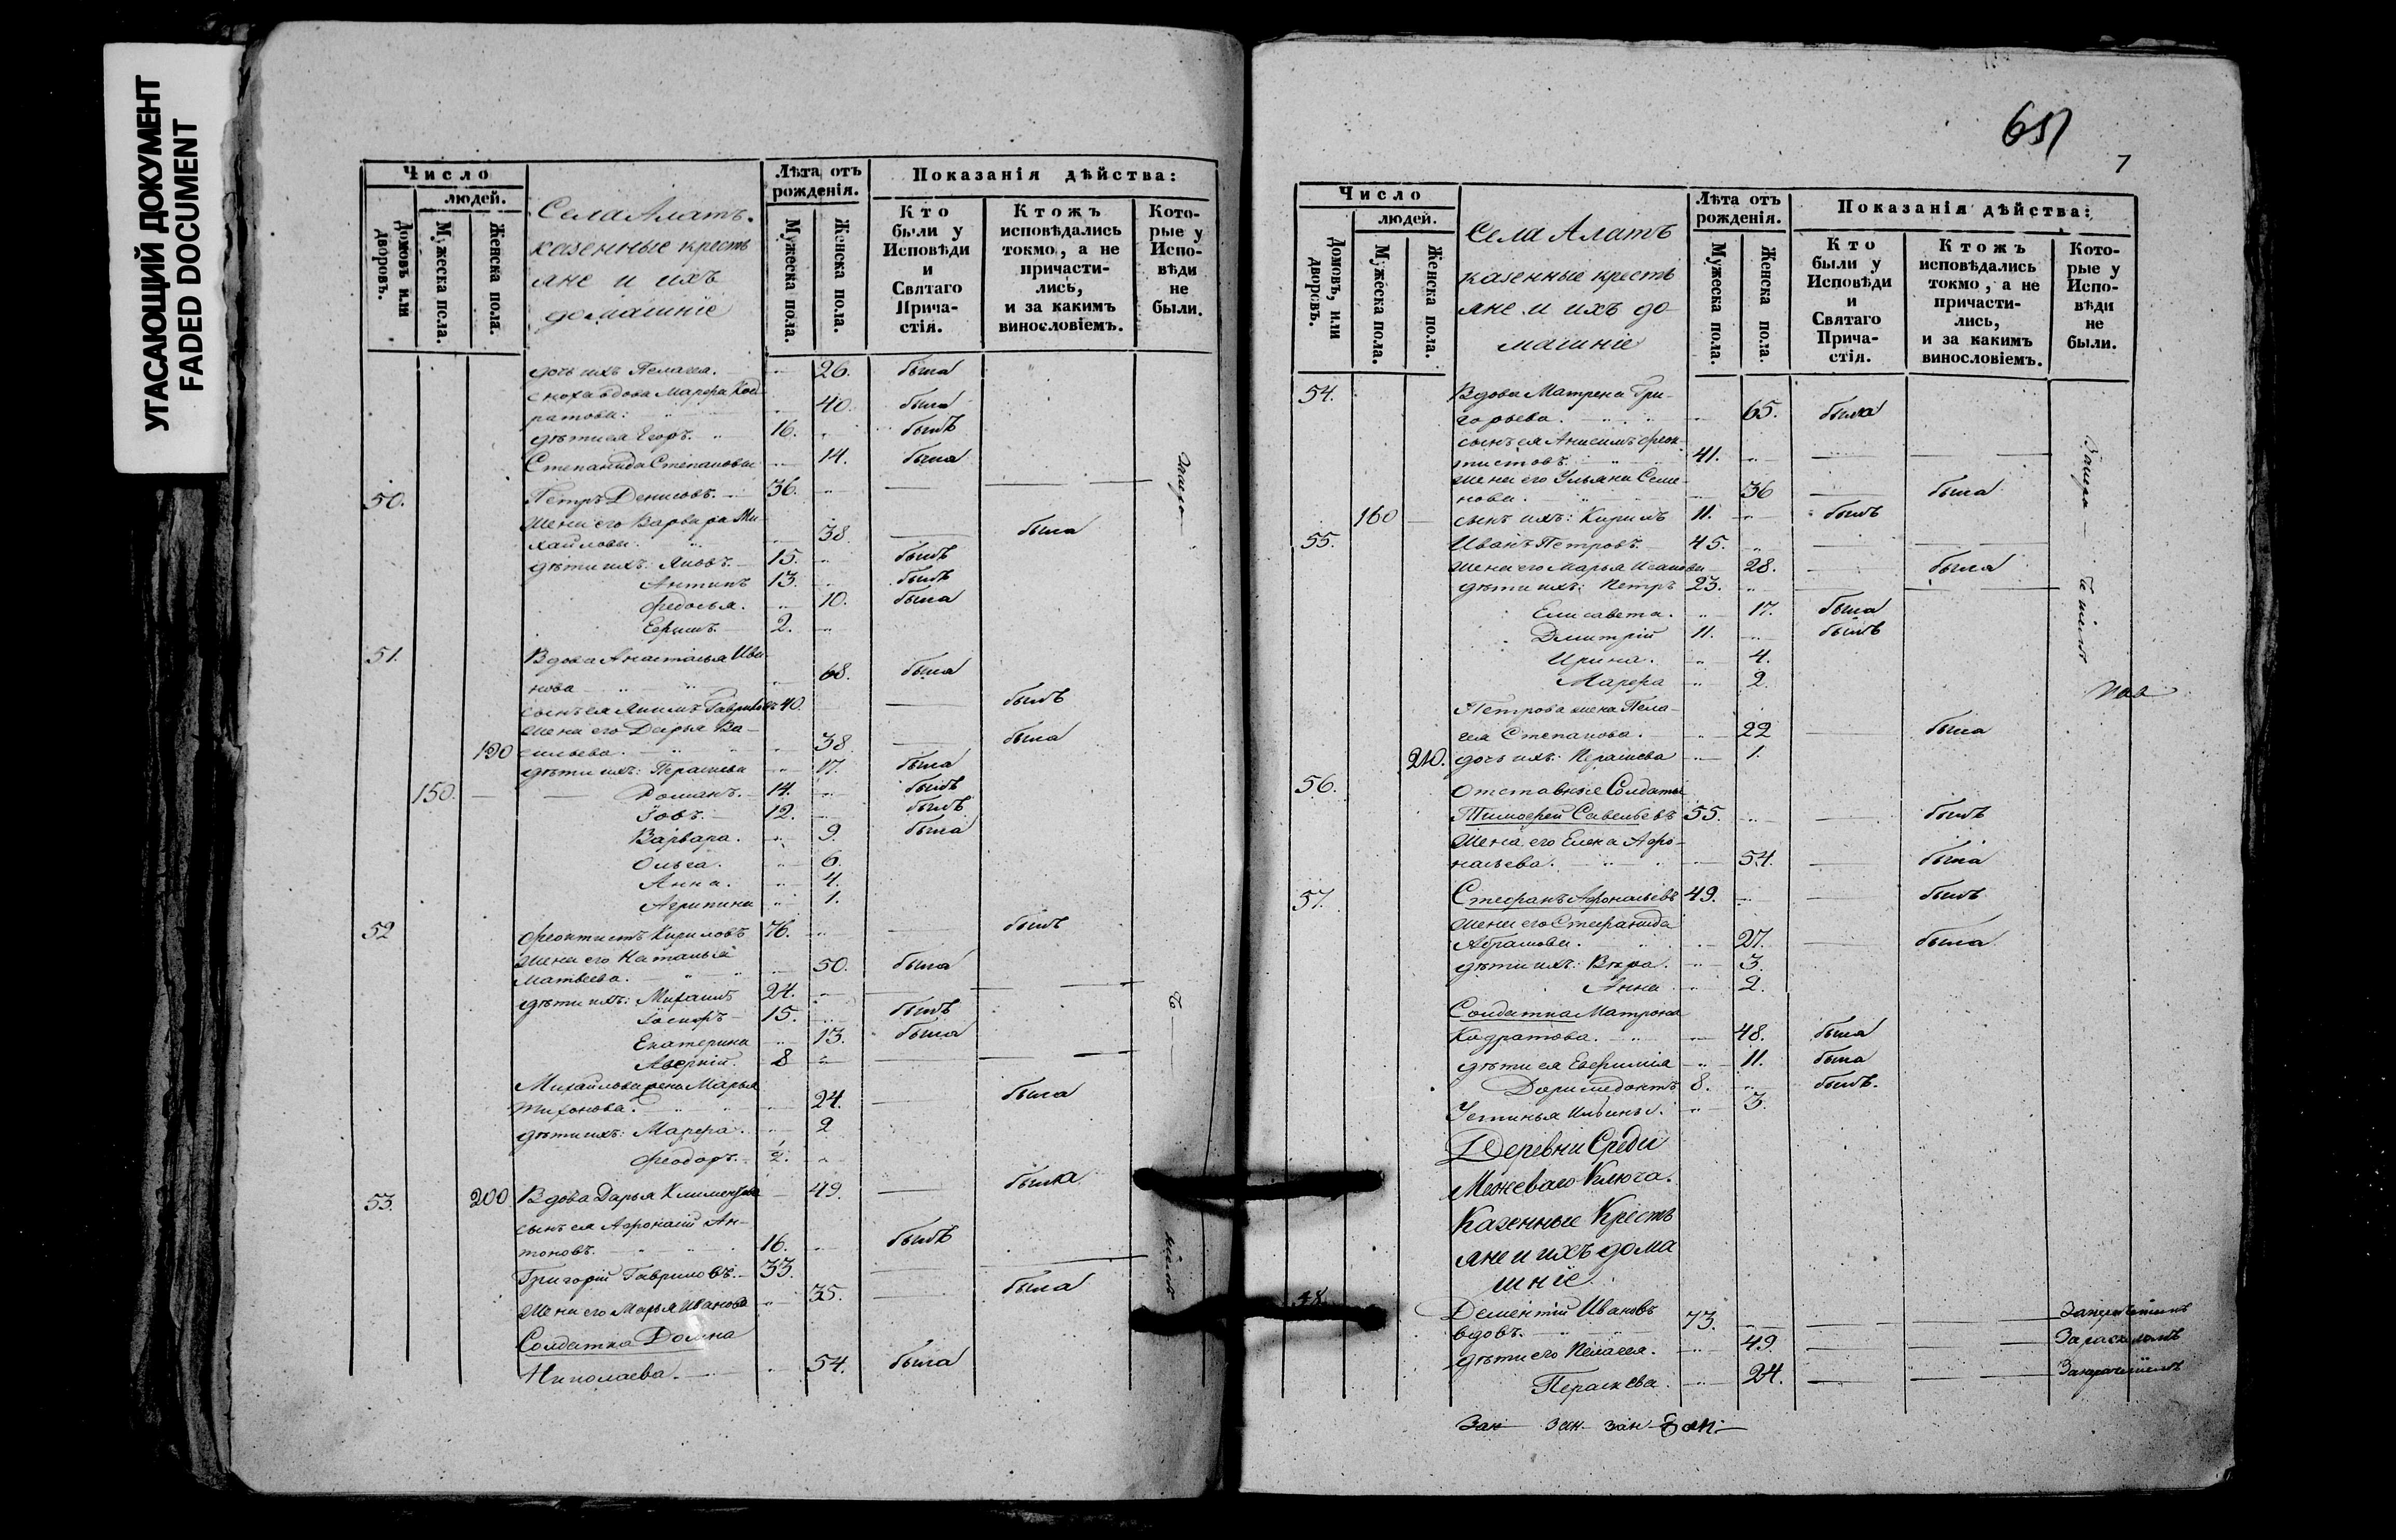 УГАСАЮЩИЙ ДОКУМЕНТ
FADED DOCUMENT
Число
людей.
Домовъ или дворовъ.
Мужеска пола.
Женска пола.
Села Алатъ.
казенные кресть
яне и ихъ
домашніе
Лѣта отъ рожденія.
Мужеска пола.
Женска пола.
Показанія дѣйства:
Кто были у Исповѣди и Святаго Прича-стія.
Ктожъ исповѣдались токмо, а не причасти-лись, и за какимъ винословіемъ.
Кото-рые у Испо-вѣди не были.
дочь ихъ Пелагея. 26. была
сноха вдова Марфа Код
ратова: 40. была
дѣти ея Егоръ. 16. былъ
Степанида Степановы 14. была
50. Петръ Денисовъ. 36.
Жена его Варвара Ми
хайлова. 38 была
дѣти ихъ: Яковъ. 15. былъ
Антипъ 13. былъ
Федосья. 10. была
Ефимъ. 2.
51. Вдова Анастасья Ива
нова 68. была
сынъ ея Якимъ Гавриловъ 40. былъ
Жена его Дарья Ва-
190 сильева. 38 была
дѣти ихъ: Параскева 17. была
150. Романъ. 14. былъ
Іовъ. 12. былъ
Варвара. 9. была
Ольга. 6.
Анна. 4.
Агрипина 1.
52 Феоктистъ Кириловъ 76. былъ
Жена его Наталья
Матвеева. 50. была
дѣти ихъ: Михаилъ 24.
Іосифъ 15. былъ
Екатерина 13. была
Аверкій. 8
Михайлова жена Марья
Тихонова. 24. была
дѣти ихъ: Марфа. 2
Феодоръ. 1/2.
53. 200. Вдова Дарья Климентова 49. была
сынъ ея Афонасій Ан-
тоновъ. 16. былъ
Григорій Гавриловъ. 33.
Жена его Марья Иванова 35. была
Солдатка Домна
Николаева. 54. была
651
7
Число
людей.
Домовъ, или дворовъ.
Мужеска пола.
Женска пола.
Села Алатъ
казенные кресть
яне и ихъ до-
машніе
Лѣта отъ рожденія.
Мужеска пола.
Женска пола.
Показанія дѣйства:
Кто были у Исповѣди и Святаго Прича-стія.
Ктожъ исповѣдались токмо, а не причасти-лись, и за какимъ винословіемъ.
Кото-рые у Испо-вѣди не были.
54. Вдова Матрена Гри-
горьева. 65. была
сынъ ея Анисимъ Феок-
тистовъ. 41.
Жена его Ульяна Семе-
нова. 36 была
160 сынъ ихъ: Кирилъ 11. былъ
55. Иванъ Петровъ. 45.
Жена его Марья Исакова 28. была
дѣти ихъ: Петръ 23.
Елисавета. 17. была
Дмитрій 11. былъ
Ирина. 4.
Марфа 2.
Петрова жена Пела-
гея Степанова. 22 была
210. дочь ихъ: Параскева 1.
56. Отставные Солдаты
Тимофей Савельевъ 55. былъ
Жена его Елена Афо-
насьева. 54. была
57. Стефанъ Афонасьевъ 49. былъ
Жена его Стефанида
Абрамова. 27. была
дѣти ихъ: Вѣра. 3.
Анна 2.
Солдатка Матрона
Кодратова. 48. была
дѣти ея Евфимія 11. была
Доримедонтъ 8. былъ.
Устинья Ильины. 3.
Деревни Среди
Межеваго Ключа.
Казенные Кресть
яне и ихъ дома
шніе
58. Дементій Ивановъ
вдовъ. 73.
дѣти его Пелагея. 49. За расколомъ
Параскева. 24.